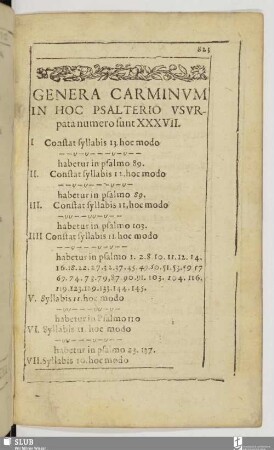 GENERA CARMINVM
IN HOC PSALTERIO VSVR-
pata numero sunt XXXVII.
I Constat syllabis 13. hoc modo
habetur in psalmo 89.
II. Constat syllabis 12. hoc modo
habetur in psalmo 89.
III. Constat syllabis 11, hoc modo
habetur in psalmo 103.
IIII Constat syllabis 11. hoc modo
habetur in psalmo 1. 2. 8. 10. 11. 12. 14.
16. 18. 22. 27. 32. 37. 45. 50. 51. 53. 59.
69. 74. 75. 79, 87. 90. 91. 103. 104. 116,
119. 123. 129. 133. 144. 145.
V. Syllabis 11. hoc modo
habetur in Psalmo 110
VI. Syllabis 11. hoc modo
habetur in psalmo 25. 137.
VII. Syllabis 10. hoc modo
SLUB
Wir führen Wissen.